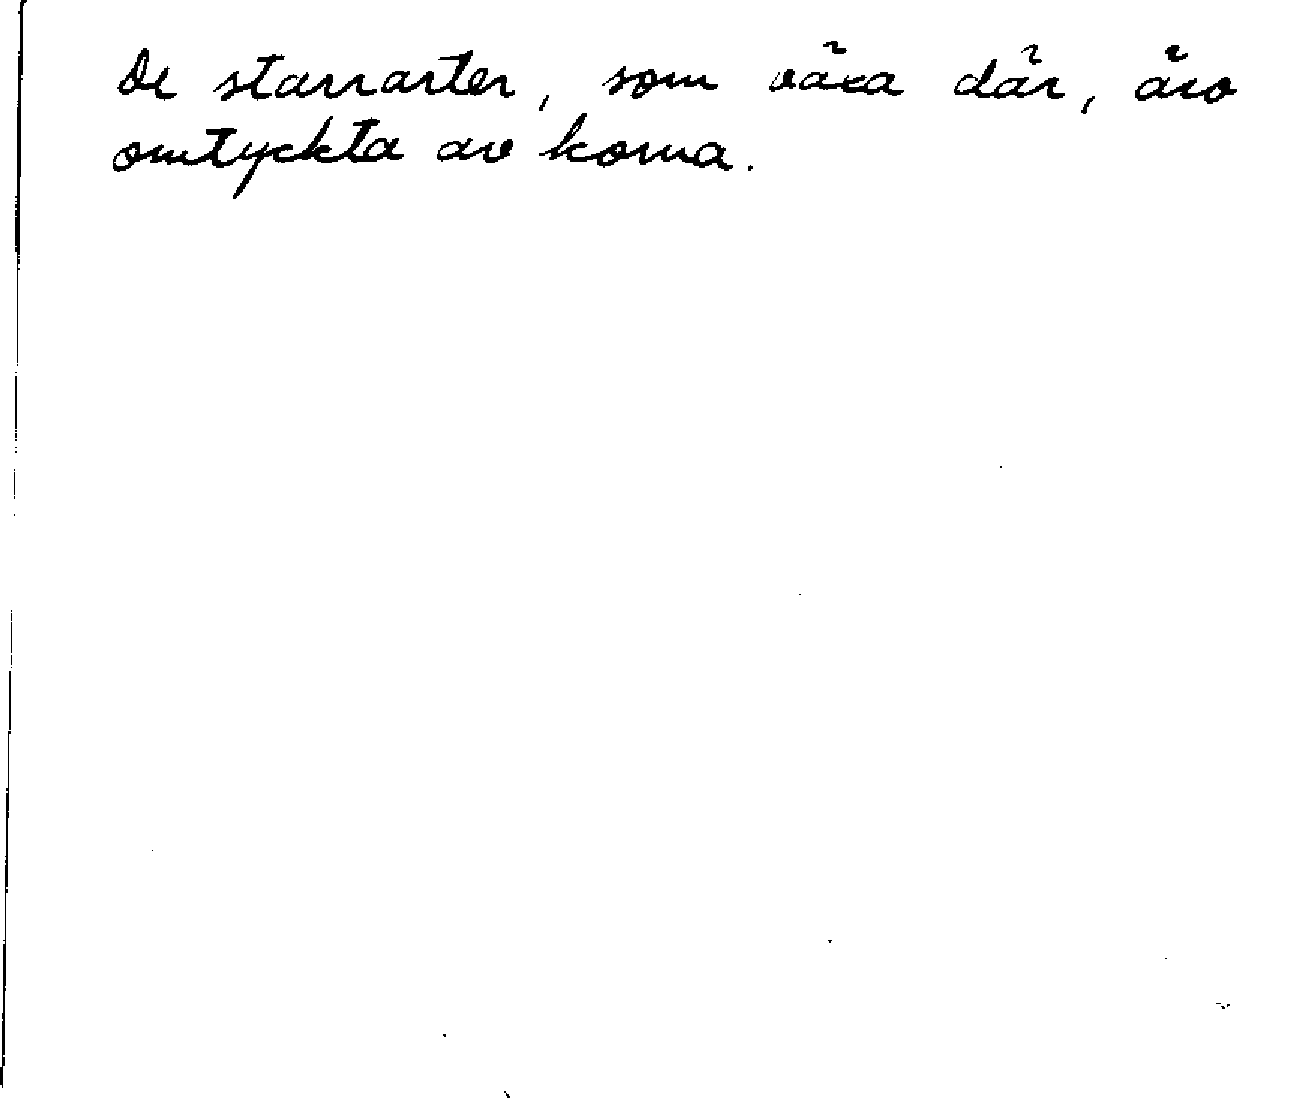 De starrarter, som växa där, äro
omtyckta av korna.